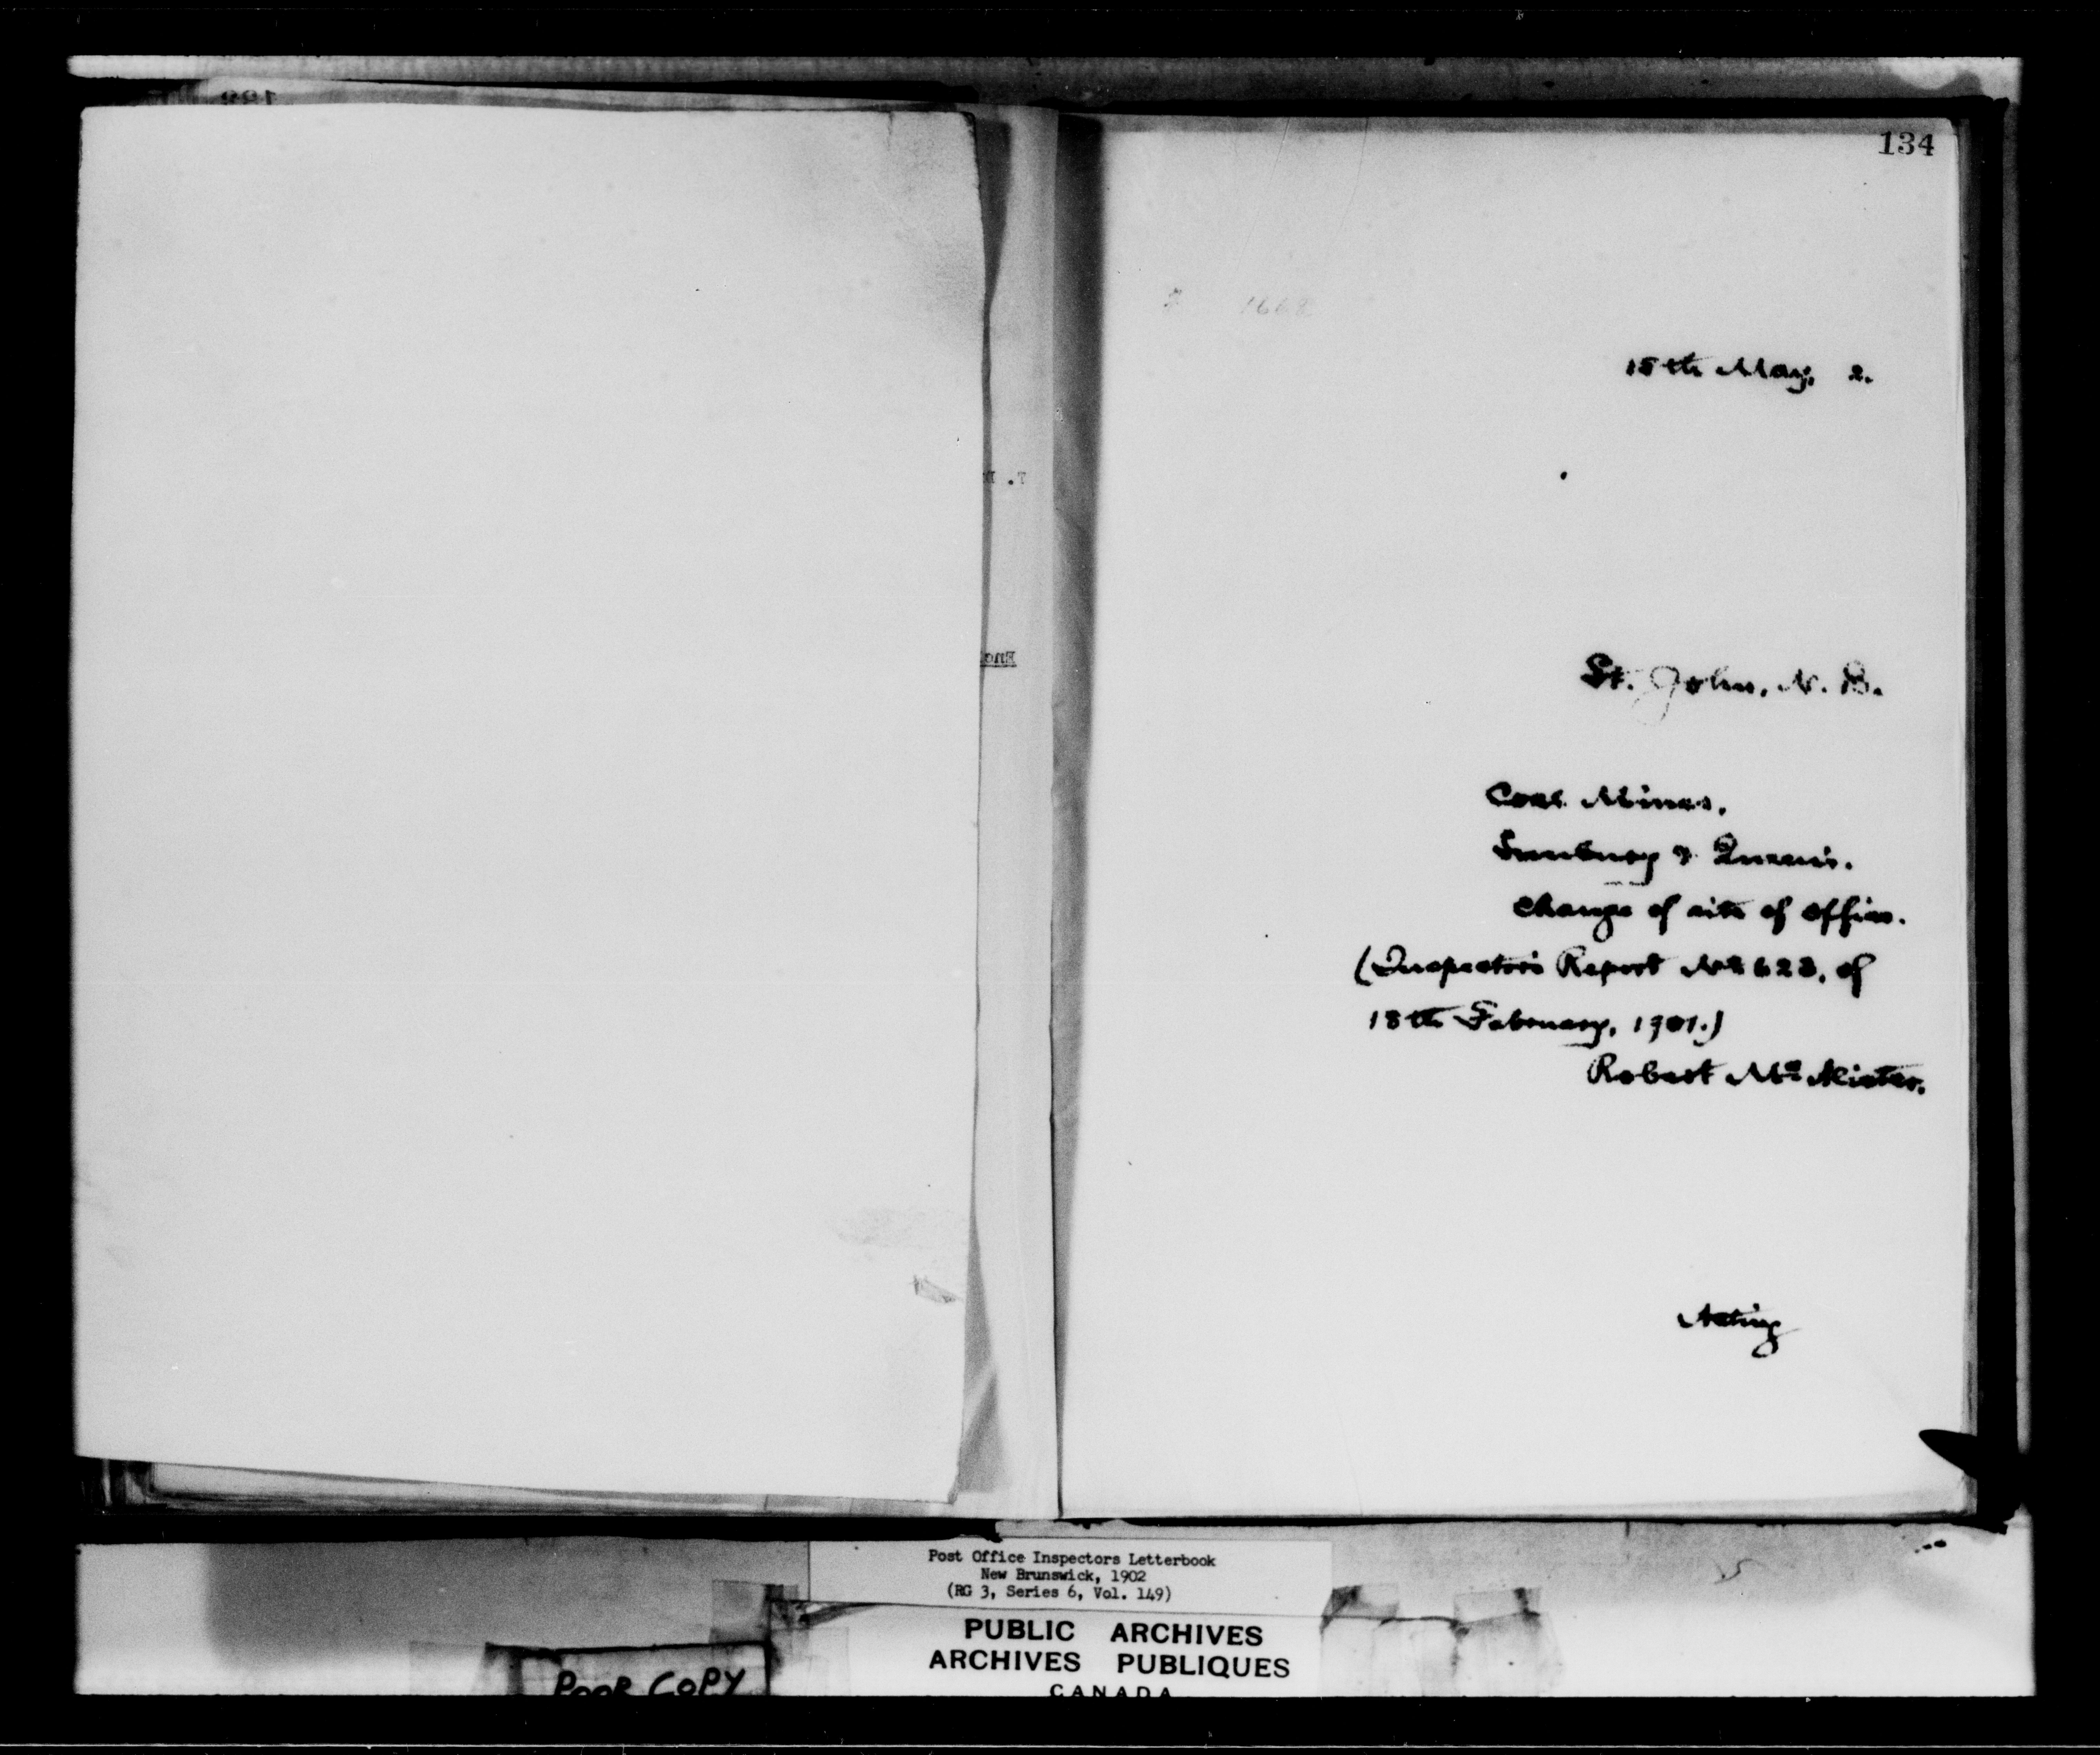 134
1668
15th May, 2.
St. John, N. B.
Coal Mines,
Sunbury & Queen's.
Change of site of Office.
(Inspector's Report No 623, of
18th February, 1901.)
Robert Mc
Acting
Post Office Inspectors Letterbook
New Brunswick, 1902
(RG 3, Series 6, Vol. 149)
PUBLIC ARCHIVES
ARCHIVES PUBLIQUES
CANADA
POOR COPY